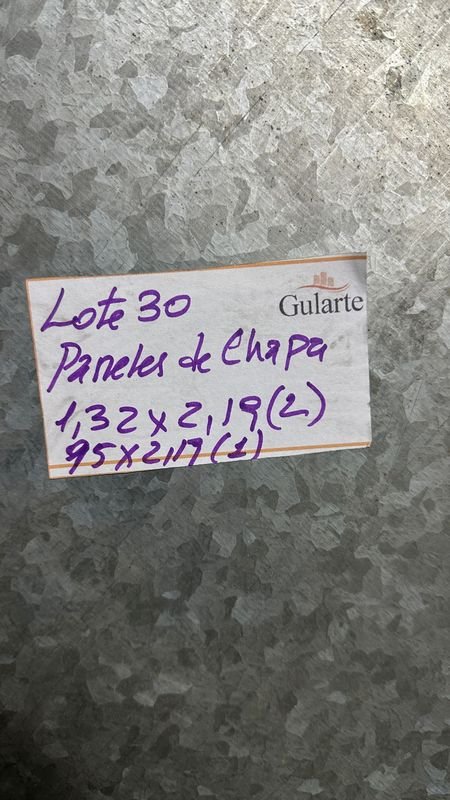 Gularte
Lote 30
Paneles de Chapa
1,32 x 2,19 (2)
95 x 2,19 (1)